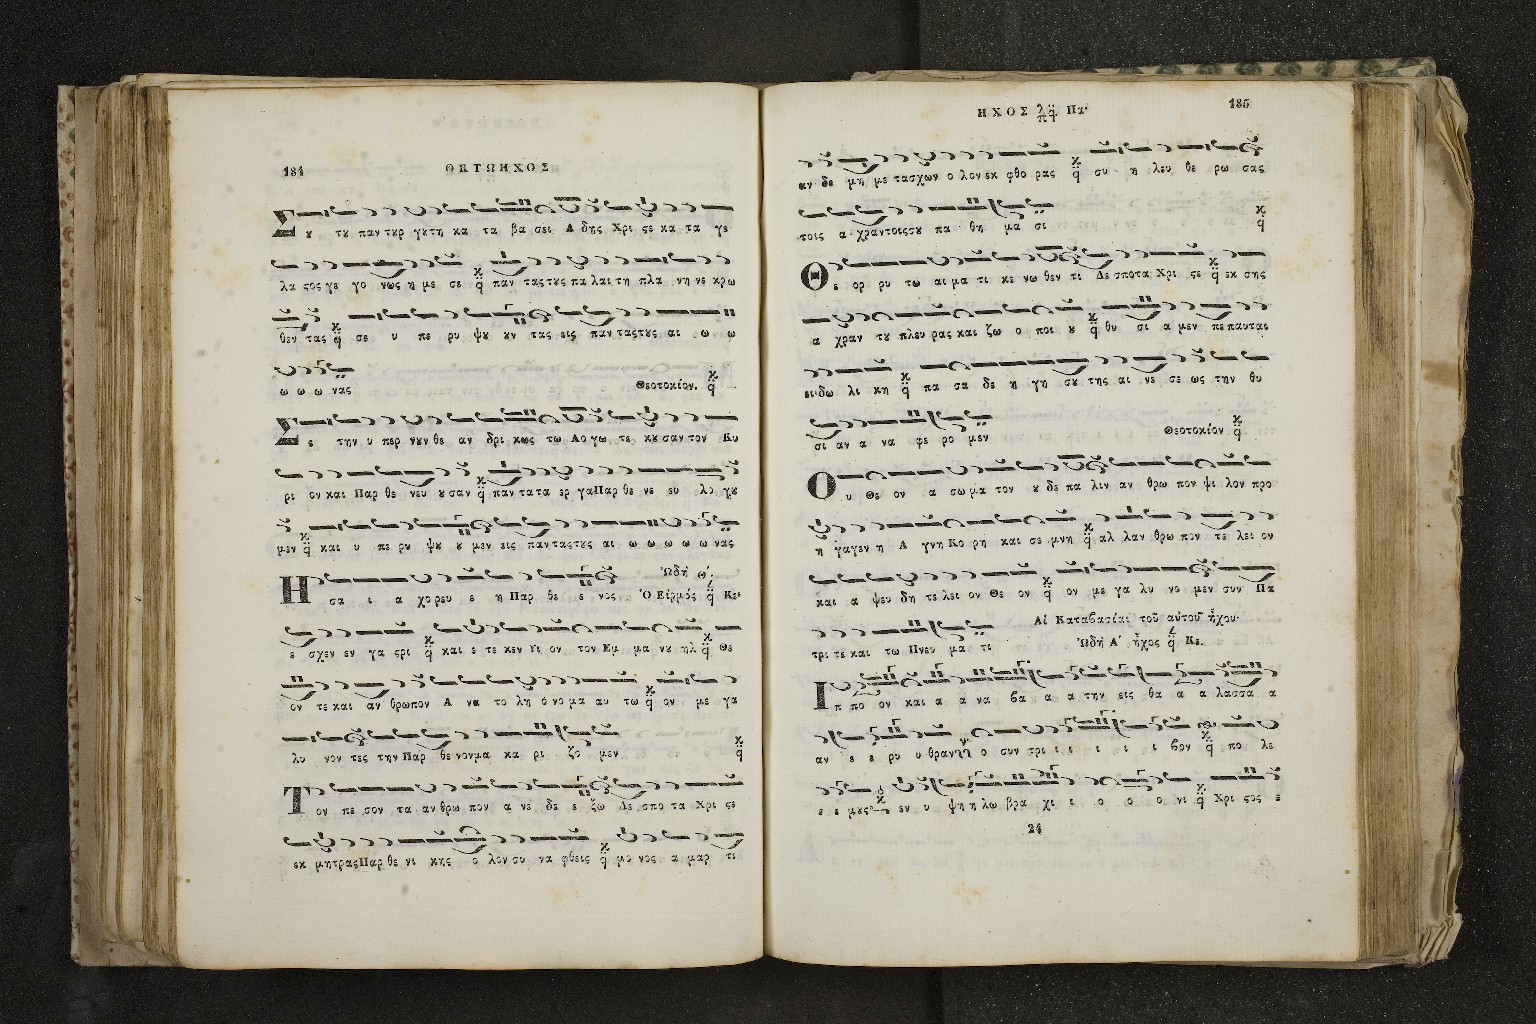 184 ΟΚΤΩΗΧΟΣ
Σ ȣ τȣ παν τȣρ γȣ τη κα τα βα σει Α δης Χρι ϛε κα τα γε
λα ϛος γε γο νως η με σε παν τας τȣς πα λαι τη πλα νη νε κρω
θεν τας σε υ πε ρυ ψȣ ȣν τας εις παν τας τȣς αι ω ω
ω ω ω νας Θεοτοκίον.
Σ ε την υ περ νȣν θε αν δρι κως τω Λο γω τε κȣ σαν τον Κυ
ρι ον και Παρ θε νευ ȣ σαν παν τα τα ερ γα Παρ θε νε ευ λο γȣ
μεν και υ πε ρυ ψȣ ȣ μεν εις παν τας τȣς αι ω ω ω ω ω νας
Η σα ι α χο ρευ ε η Παρ θε ε νος Ὠδὴ Θ΄. Ὁ Εἱρμός Κε·
ε σχεν εν γα ϛρι και ε τε κεν Υι ον τον Εμ μα νȣ ηλ Θε
ον τε και αν θρωπον Α να το λη ό νο μα αυ τω ον με γα
λυ νον τες την Παρ θε νον μα κα ρι ζο μεν
Τ ον πε σον τα αν θρω πον α νε δε ε ξω Δε σπο τα Χρι ϛε
εκ μητρας Παρ θε νι κης ο λον συ να φθεις μο νος α μαρ τι
ΗΧΟΣ Πα· 185
αν δε μη με τασχων ο λον εκ φθο ρας συ η λευ θε ρω σας
τοις α χραν τοις σȣ πα θη μα σι
Θ ε ορ ρυ τω αι μα τι κε νω θεν τι Δε σποτα Χρι ϛε εκ σης
α χραν τȣ πλευ ρας και ζω ο ποι ȣ θυ σι α μεν πε παυται
ει δω λι κη πα σα δε η γη σȣ της αι νε σε ως την θυ
σι αν α να φε ρο μεν Θεοτοκίον
Ο υ Θε ον α σω μα τον ȣ δε πα λιν αν θρω πον ψι λον προ
η γα γεν η Α γνη Κο ρη και σε μνη αλ λαν θρω πον τε λει ον
και α ψευ δη τε λει ον Θε ον ον με γα λυ νο μεν συν Πα
τρι τε και τω Πνευ μα τι Αἱ Καταβασίαι τοῦ αὐτοῦ ἤχου·
Ὠδὴ Α΄ ἦχος Κε.
Ι π πο ον και α α να βα α α την εις θα α α λασσα α
αν ε ε ρυ υ θραν ο συν τρι ι ι ι ι ι βον πο λε
ε ε μȣς εν υ ψη η λω βρα χι ι ο ο ο νι Χρι ϛος ε
24